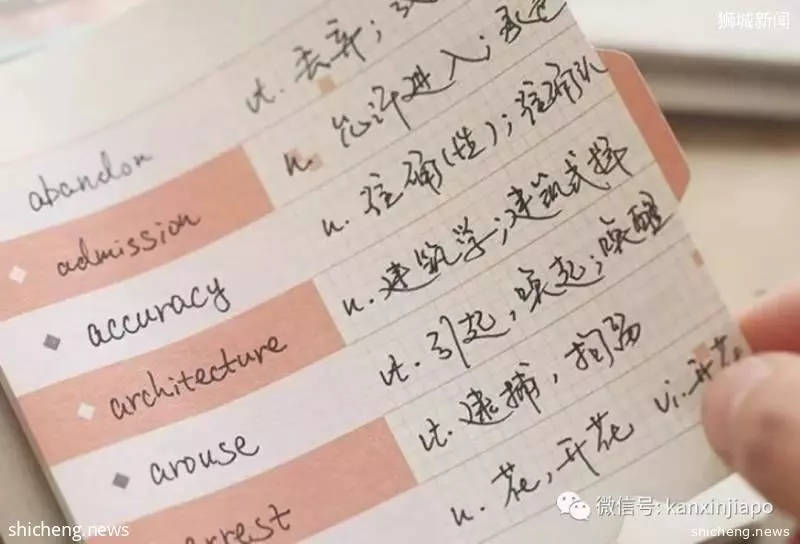 狮城新闻
abandon vt. 丢弃;
admission n. 允许进入;
accuracy n. 准确(性);准确
architecture n. 建筑学;建筑式样
arouse vt. 引起,唤起;唤醒
arrest vt. 逮捕,拘留
n. 花,开花 vi. 开花
微信号: kanxinjiapo
shicheng.news
shicheng.news